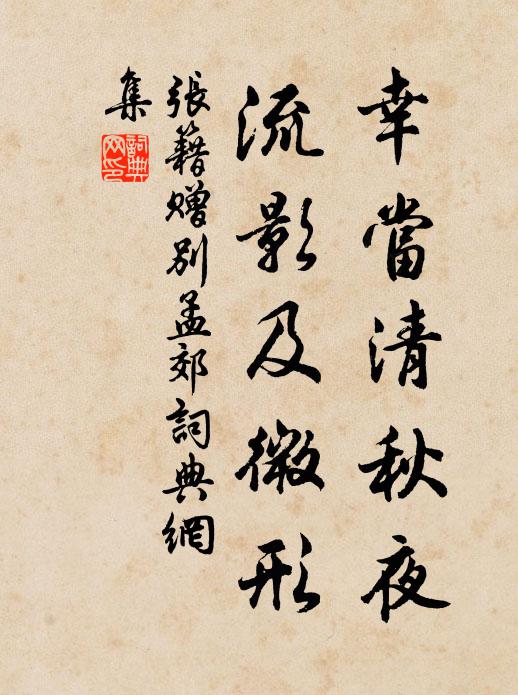 幸當清秋夜
流影及微形
張籍赠別孟郊詞典網
集
詞典
网印